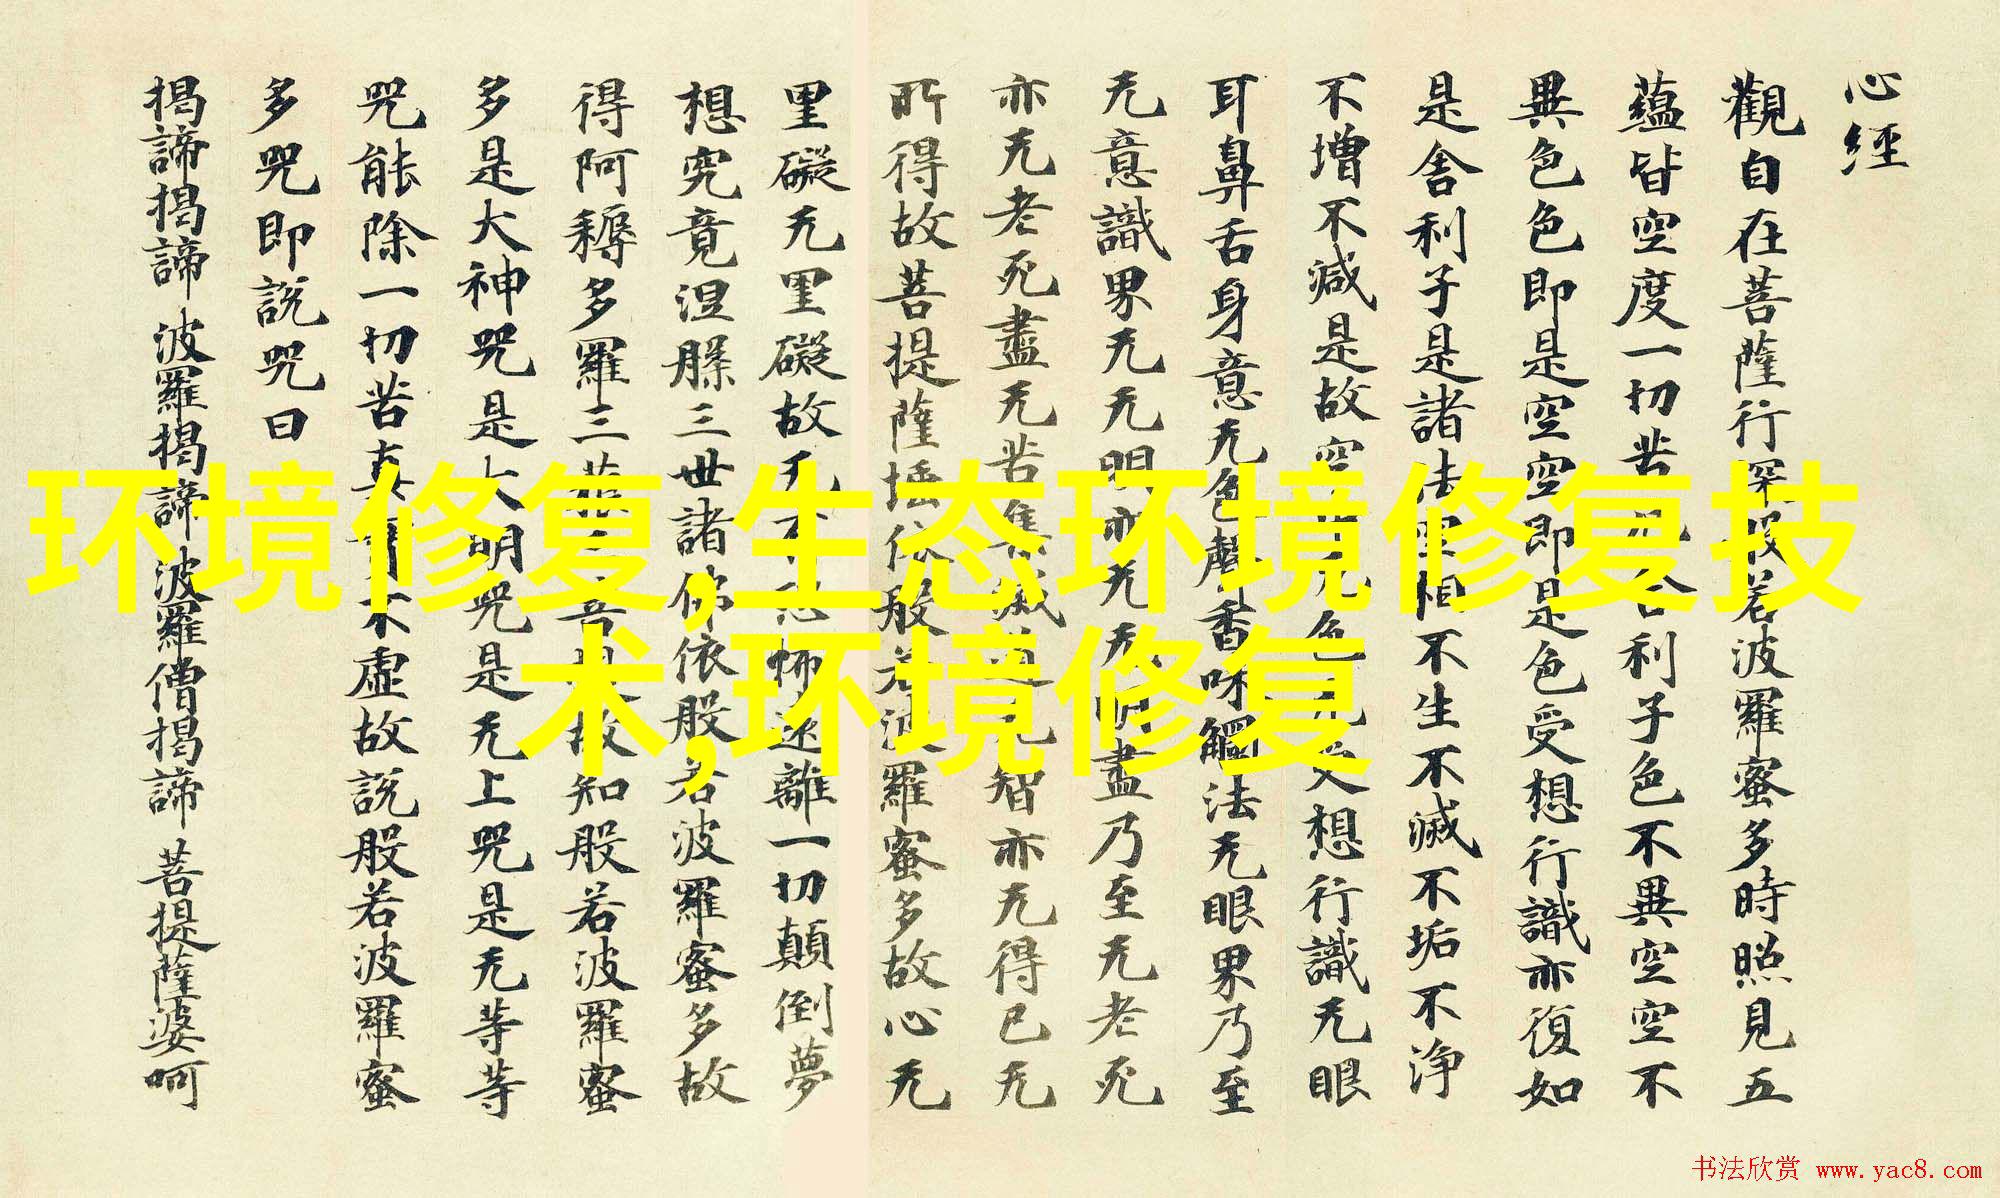 心經
觀自在菩薩行深般若波羅蜜多時照見五
蘊皆空度一切苦厄舍利子色不異空空不
異色色即是空空即是色受想行識亦復如
是舍利子是諸法空相不生不滅不垢不淨
不增不減是故空中无色无受想行識无眼
耳鼻舌身意无色聲香味觸法无眼界乃至
无意識界无无明亦无无明盡乃至无老死
亦无老死盡无苦集滅道无智亦无得已无
所得故菩提薩埵依般若波羅蜜多故心无
罣礙无罣礙故无有恐怖遠離一切顛倒夢
想究竟涅槃三世諸佛依般若波羅蜜多故
得阿耨多羅三藐三菩提故知般若波羅蜜
多是大神咒是大明咒是无上咒是无等等
咒能除一切苦真實不虛故說般若波羅蜜
多咒即說咒曰
揭諦揭諦 波羅揭諦 波羅僧揭諦 菩提薩婆呵
环境修复,生态环境修复技
术,环境修复
书法欣赏 www.yac8.com